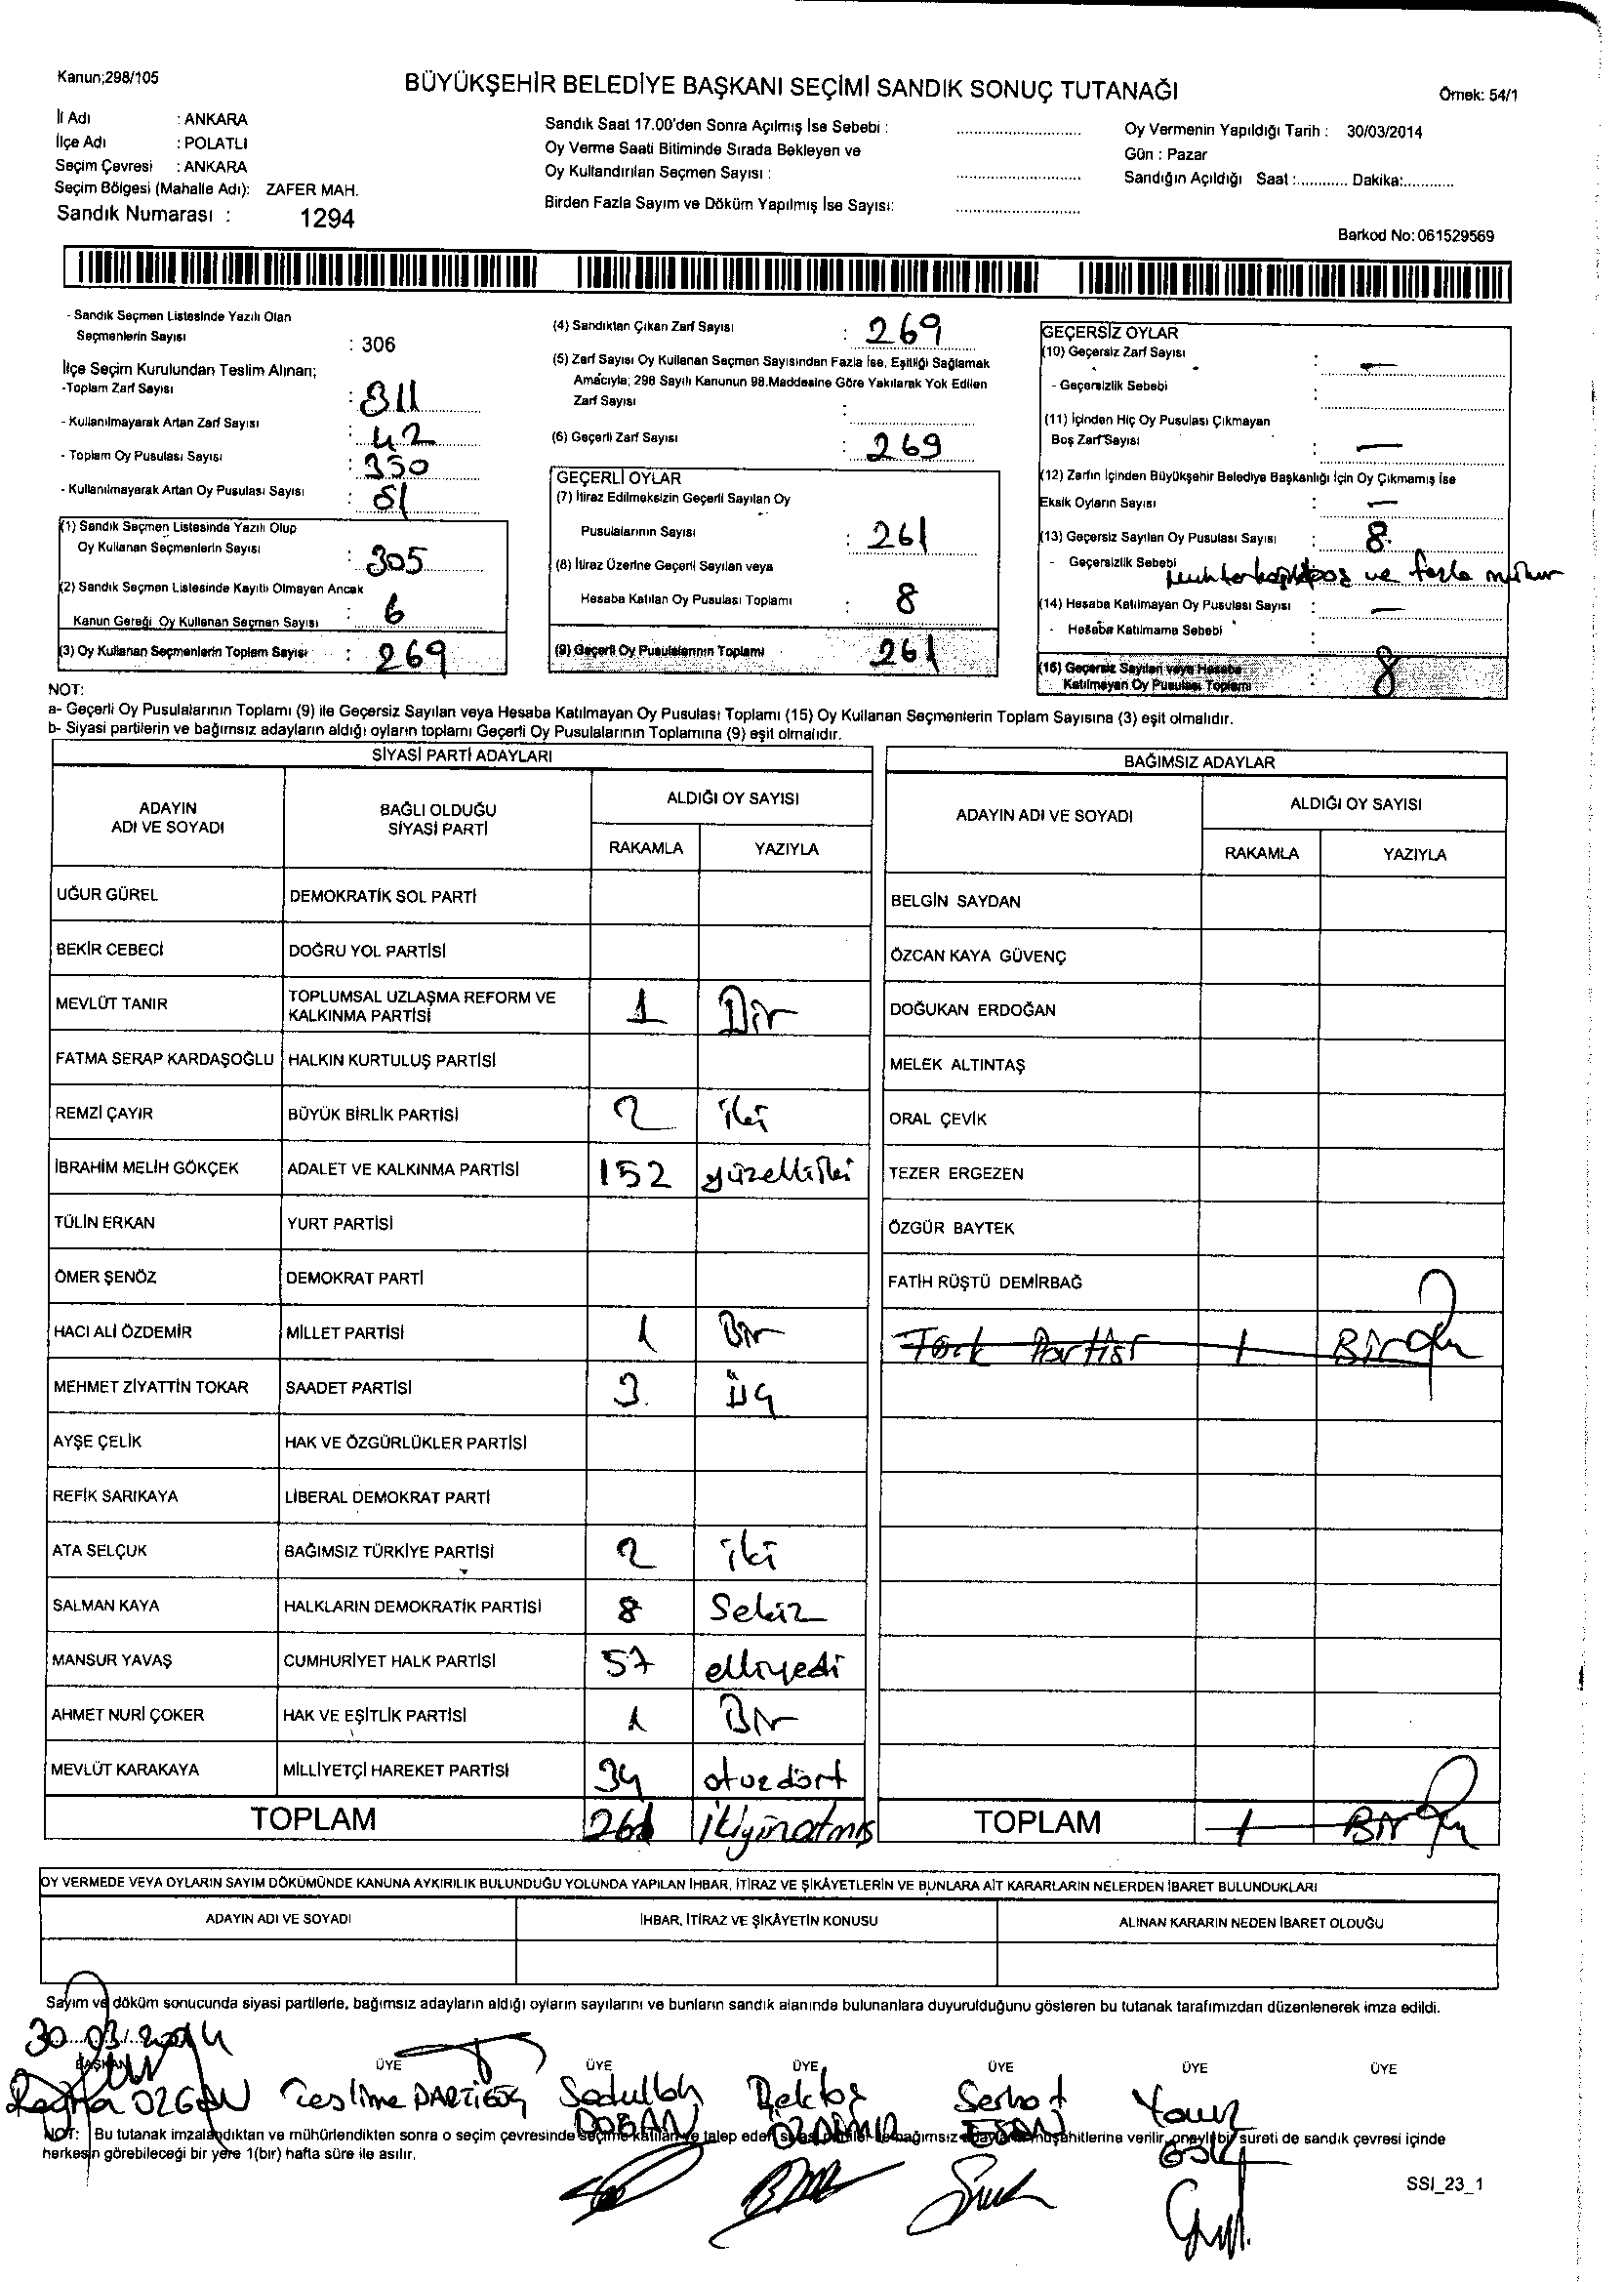 Kanun;298/105
BÜYÜKŞEHİR BELEDİYE BAŞKANI SEÇİMİ SANDIK SONUÇ TUTANAĞI
Örnek: 54/1
İl Adı : ANKARA
İlçe Adı : POLATLI
Seçim Çevresi : ANKARA
Seçim Bölgesi (Mahalle Adı): ZAFER MAH.
Sandık Numarası : 1294
Sandık Saat 17.00'den Sonra Açılmış İse Sebebi :
Oy Verme Saati Bitiminde Sırada Bekleyen ve
Oy Kullandırılan Seçmen Sayısı :
Birden Fazla Sayım ve Döküm Yapılmış İse Sayısı:
Oy Vermenin Yapıldığı Tarih : 30/03/2014
Gün : Pazar
Sandığın Açıldığı Saat :............ Dakika:............
Barkod No: 061529569
- Sandık Seçmen Listesinde Yazılı Olan
Seçmenlerin Sayısı : 306
İlçe Seçim Kurulundan Teslim Alınan;
-Toplam Zarf Sayısı : 311
- Kullanılmayarak Artan Zarf Sayısı : 42
- Toplam Oy Pusulası Sayısı : 350
- Kullanılmayarak Artan Oy Pusulası Sayısı : 81
(1) Sandık Seçmen Listesinde Yazılı Olup
Oy Kullanan Seçmenlerin Sayısı : 305
(2) Sandık Seçmen Listesinde Kayıtlı Olmayan Ancak
Kanun Gereği Oy Kullanan Seçmen Sayısı : 6
(3) Oy Kullanan Seçmenlerin Toplam Sayısı : 269
(4) Sandıktan Çıkan Zarf Sayısı : 269
(5) Zarf Sayısı Oy Kullanan Seçmen Sayısından Fazla İse, Eşitliği Sağlamak
Amacıyla; 298 Sayılı Kanunun 98.Maddesine Göre Yakılarak Yok Edilen
Zarf Sayısı :
(6) Geçerli Zarf Sayısı : 269
GEÇERLİ OYLAR
(7) İtiraz Edilmeksizin Geçerli Sayılan Oy
Pusulalarının Sayısı : 261
(8) İtiraz Üzerine Geçerli Sayılan veya
Hesaba Katılan Oy Pusulası Toplamı : 8
(9) Geçerli Oy Pusulalarının Toplamı 261
GEÇERSİZ OYLAR
(10) Geçersiz Zarf Sayısı : —
- Geçersizlik Sebebi :
(11) İçinden Hiç Oy Pusulası Çıkmayan
Boş Zarf Sayısı : —
(12) Zarfın İçinden Büyükşehir Belediye Başkanlığı İçin Oy Çıkmamış İse
Eksik Oyların Sayısı : —
(13) Geçersiz Sayılan Oy Pusulası Sayısı : 8
- Geçersizlik Sebebi ve fazla mühür
(14) Hesaba Katılmayan Oy Pusulası Sayısı : —
- Hesaba Katılmama Sebebi :
(15) Geçersiz Sayılan veya Hesaba
Katılmayan Oy Pusulası Toplamı : 8
NOT:
a- Geçerli Oy Pusulalarının Toplamı (9) ile Geçersiz Sayılan veya Hesaba Katılmayan Oy Pusulası Toplamı (15) Oy Kullanan Seçmenlerin Toplam Sayısına (3) eşit olmalıdır.
b- Siyasi partilerin ve bağımsız adayların aldığı oyların toplamı Geçerli Oy Pusulalarının Toplamına (9) eşit olmalıdır.
SİYASİ PARTİ ADAYLARI
ADAYIN ADI VE SOYADI
BAĞLI OLDUĞU SİYASİ PARTİ
ALDIĞI OY SAYISI
RAKAMLA YAZIYLA
UĞUR GÜREL DEMOKRATİK SOL PARTİ
BEKİR CEBECİ DOĞRU YOL PARTİSİ
MEVLÜT TANIR TOPLUMSAL UZLAŞMA REFORM VE KALKINMA PARTİSİ 1 Bir
FATMA SERAP KARDAŞOĞLU HALKIN KURTULUŞ PARTİSİ
REMZİ ÇAYIR BÜYÜK BİRLİK PARTİSİ 2 iki
İBRAHİM MELİH GÖKÇEK ADALET VE KALKINMA PARTİSİ 152 yüzelliiki
TÜLİN ERKAN YURT PARTİSİ
ÖMER ŞENÖZ DEMOKRAT PARTİ
HACI ALİ ÖZDEMİR MİLLET PARTİSİ 1 Bir
MEHMET ZİYATTİN TOKAR SAADET PARTİSİ 3 üç
AYŞE ÇELİK HAK VE ÖZGÜRLÜKLER PARTİSİ
REFİK SARIKAYA LİBERAL DEMOKRAT PARTİ
ATA SELÇUK BAĞIMSIZ TÜRKİYE PARTİSİ 2 iki
SALMAN KAYA HALKLARIN DEMOKRATİK PARTİSİ 8 Sekiz
MANSUR YAVAŞ CUMHURİYET HALK PARTİSİ 57 elliyedi
AHMET NURİ ÇOKER HAK VE EŞİTLİK PARTİSİ 1 Bir
MEVLÜT KARAKAYA MİLLİYETÇİ HAREKET PARTİSİ 34 otuzdört
TOPLAM 261 ikiyüzatmış
BAĞIMSIZ ADAYLAR
ADAYIN ADI VE SOYADI
ALDIĞI OY SAYISI
RAKAMLA YAZIYLA
BELGİN SAYDAN
ÖZCAN KAYA GÜVENÇ
DOĞUKAN ERDOĞAN
MELEK ALTINTAŞ
ORAL ÇEVİK
TEZER ERGEZEN
ÖZGÜR BAYTEK
FATİH RÜŞTÜ DEMİRBAĞ
Partisi 1 Bir
TOPLAM 1 Bir
OY VERMEDE VEYA OYLARIN SAYIM DÖKÜMÜNDE KANUNA AYKIRILIK BULUNDUĞU YOLUNDA YAPILAN İHBAR, İTİRAZ VE ŞİKÂYETLERİN VE BUNLARA AİT KARARLARIN NELERDEN İBARET BULUNDUKLARI
ADAYIN ADI VE SOYADI
İHBAR, İTİRAZ VE ŞİKÂYETİN KONUSU
ALINAN KARARIN NEDEN İBARET OLDUĞU
Sayım ve döküm sonucunda siyasi partilerle, bağımsız adayların aldığı oyların sayılarını ve bunların sandık alanında bulunanlara duyurulduğunu gösteren bu tutanak tarafımızdan düzenlenerek imza edildi.
30.03.2014
BAŞKAN ÜYE ÜYE ÜYE ÜYE ÜYE ÜYE
Teslime Sadullah Bektaş Serhat Yavuz
DOĞAN ÖZDEMİR
NOT: Bu tutanak imzalandıktan ve mühürlendikten sonra o seçim çevresinde seçime katılan ve talep eden siyasi partiler ile bağımsız adayların müşahitlerine verilir, onaylı bir sureti de sandık çevresi içinde
herkesin görebileceği bir yere 1(bir) hafta süre ile asılır.
SSI_23_1